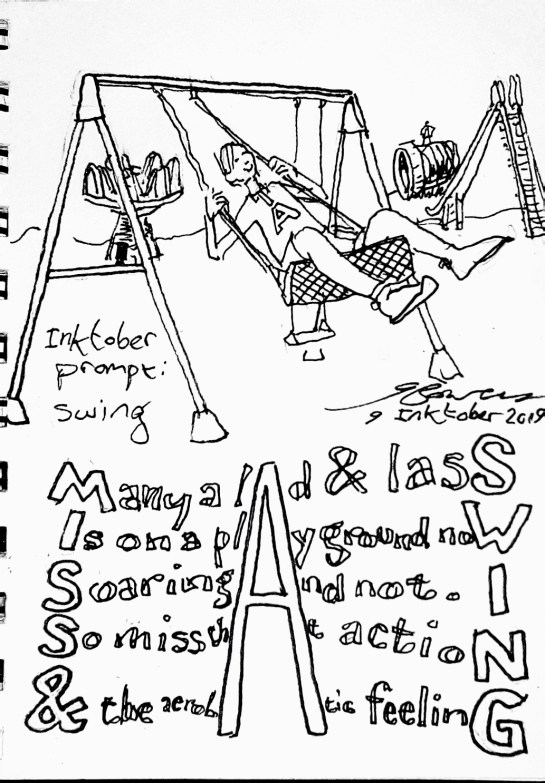 A
Inktober
prompt:
swing
9 Inktober 2019
Many a lAd & lasS
Is on a plAyground noW
Soaring And not. I
So miss thAt actioN
& the aerobAtic feelinG